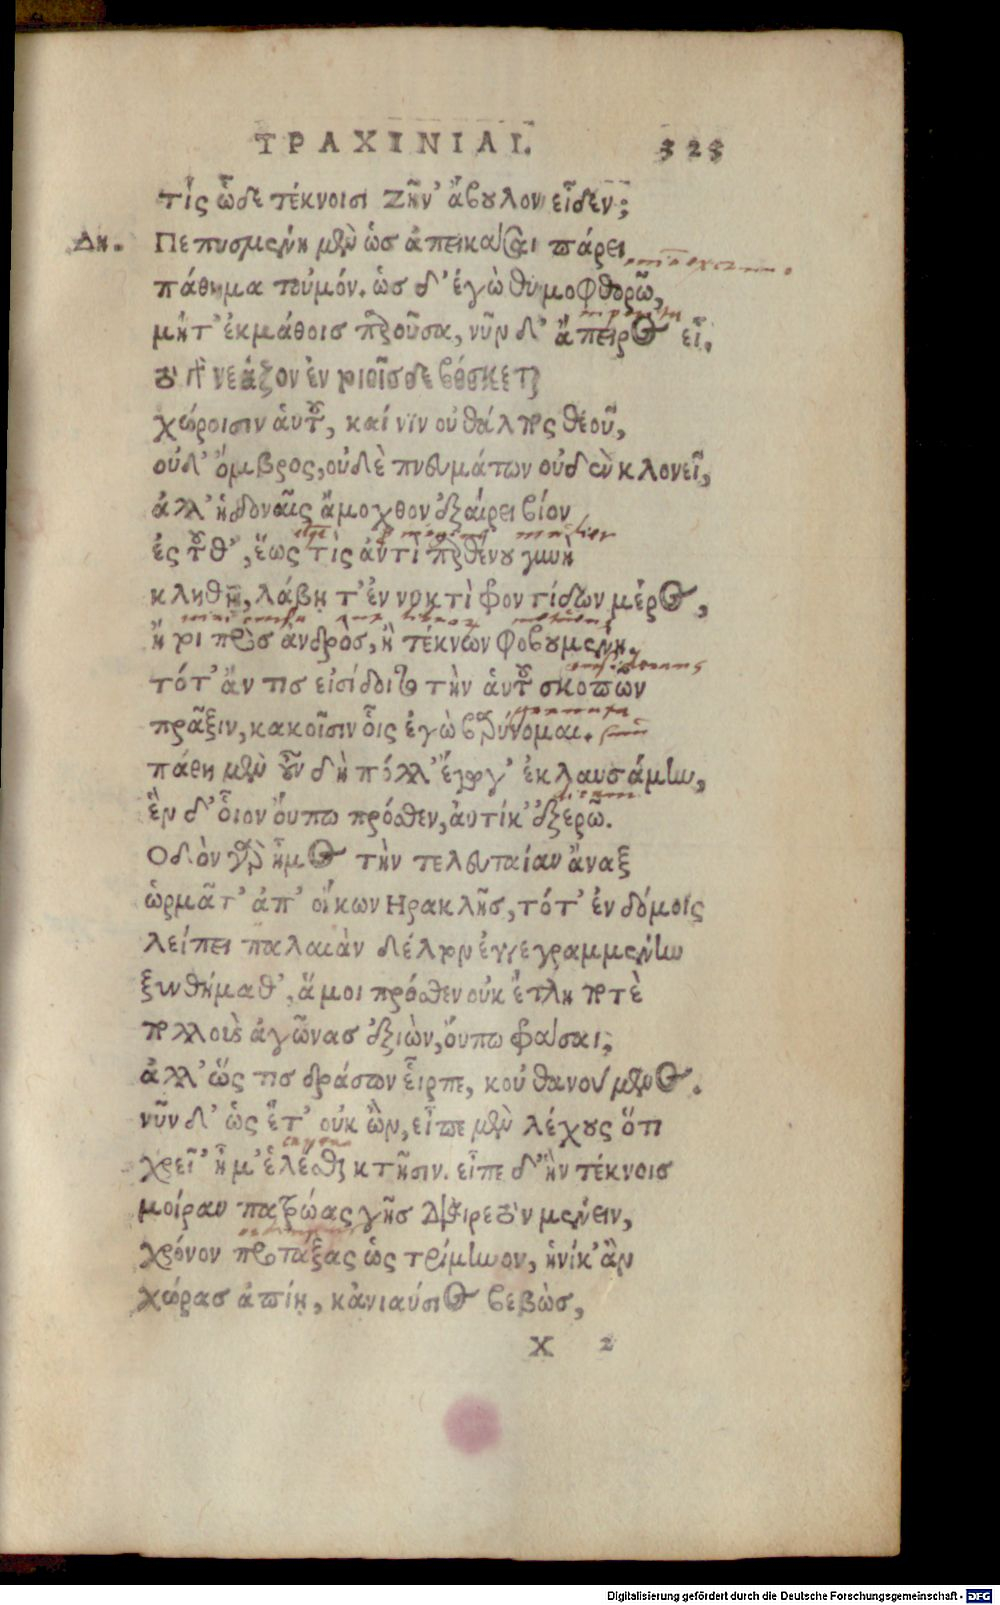 ΤΡΑΧΙΝΙΑΙ. 323
τίς ὧδε τέκνοισι Ζῆν' ἄβουλον εἶδεν;
Δη. Πεπυσμένη μὲν ὡσ ἀπεικάσαι πάρει
πάθημα τοὐμόν. ὡσ δ' ἐγὼ θυμοφθορῶ,
μήτ' ἐκμάθοισ παθοῦσα, νῦν δ' ἄπειρος εἶ.
τὸ γὰρ νεάζον ἐν τοιοῖσδε βόσκεται
χώροισιν αὑτοῦ, καί νιν οὐ θάλπος θεοῦ,
οὐδ' ὄμβρος, οὐδὲ πνευμάτων οὐδὲν κλονεῖ,
ἀλλ' ἡδοναῖς ἄμοχθον ἐξαίρει βίον
ἐς τοῦθ', ἕως τὶς ἀντὶ παρθένου γυνὴ
κληθῇ, λάβῃ τ' ἐν νυκτὶ φροντίδων μέρος,
ἤ τοι πρὸσ ἀνδρὸσ, ἢ τέκνων φοβουμένη.
τότ' ἄν τισ εἰσίδοιτο τὴν αὑτοῦ σκοπῶν
πρᾶξιν, κακοῖσιν οἷς ἐγὼ βαρύνομαι.
πάθη μὲν οὖν δὴ πόλλ' ἔγωγ' ἐκλαυσάμην,
ἓν δ' οἷον οὔπω πρόσθεν, αὐτίκ' ἐξερῶ.
Ὁδὸν γὰρ ἦμος τὴν τελευταίαν ἄναξ
ὡρμᾶτ' ἀπ' οἴκων Ηρακλῆσ, τότ' ἐν δόμοις
λείπει παλαιὰν δέλτον ἐγγεγραμμένην
ξυνθήμαθ', ἅμοι πρόσθεν οὐκ ἔτλη ποτὲ
πολλοὺς ἀγῶνασ ἐξιὼν, οὔπω φράσαι;
ἀλλ' ὥς τισ δράσων εἷρπε, κοὐ θανούμενος.
νῦν δ' ὡς ἔτ' οὐκ ὢν, εἶπε μὲν λέχους ὅτι
χρεῖ' ἦ μ' ἑλέσθαι κτῆσιν. εἶπε δ' ἣν τέκνοισ
μοίραν πατρῴας γῆσ διαιρετὸν μένειν,
χρόνον προτάξας ὡς τρίμηνον, ἡνίκ' ἂν
χώρασ ἀπίη, κἀνιαύσιος βεβὼσ,
X 2
Digitalisierung gefördert durch die Deutsche Forschungsgemeinschaft - DFG